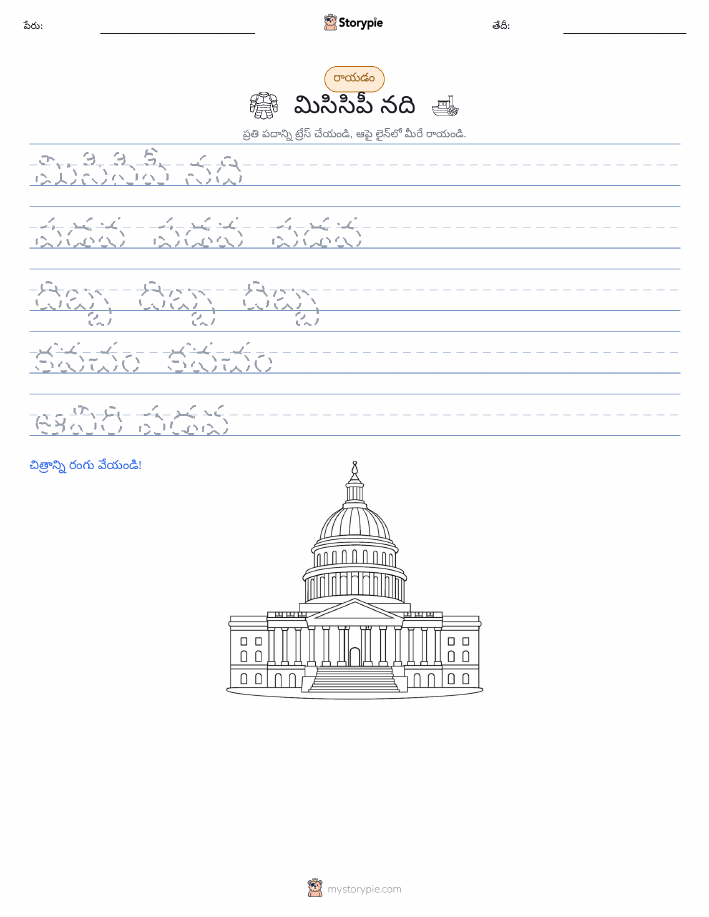 పేరు:
Storypie
తేదీ:
రాయడం
మిసిసిపీ నది
ప్రతి పదాన్ని ట్రేస్ చేయండి, ఆపై లైన్‌లో మీరే రాయండి.
మిసిసిపీ నది
పడవ పడవ పడవ
దిబ్బ దిబ్బ దిబ్బ
కవచం కవచం
ఆవిరి పడవ
చిత్రాన్ని రంగు వేయండి!
mystorypie.com